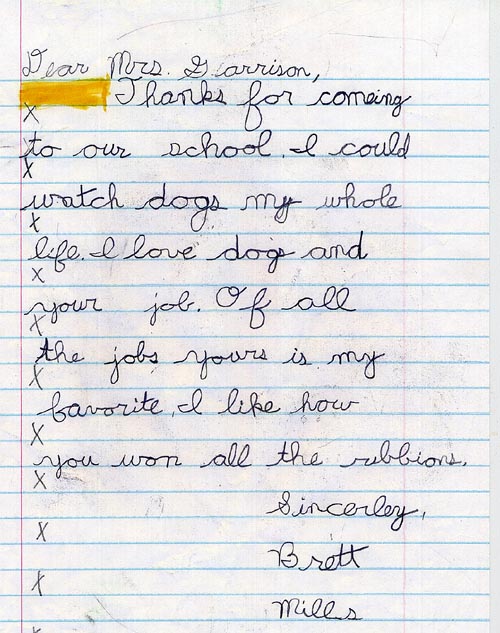 Dear Mrs. Garrison,
Thanks for comeing
x
to our school. I could
x
watch dogs my whole
x
life. I love dogs and
x
your job. Of all
x
the jobs yours is my
x
favorite. I like how
x
you won all the rubbions.
x
Sincerley,
x
Brett
x
Mills